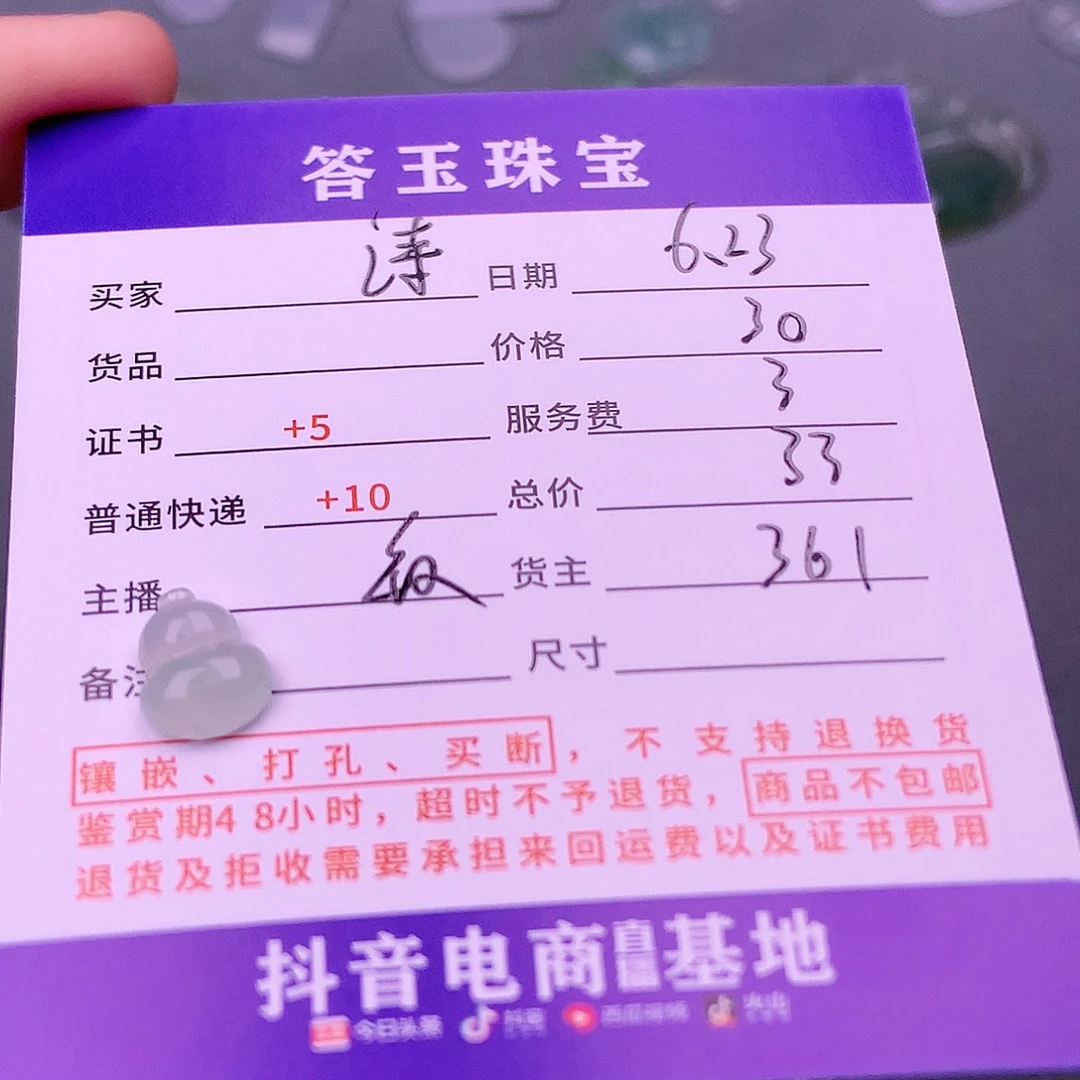 答玉珠宝
买家 涛 日期 6.23
货品 价格 30
证书 +5 服务费 3
普通快递 +10 总价 33
主播 敏 货主 361
备注 尺寸
镶嵌、打孔、买断，不支持退换货
鉴赏期48小时，超时不予退货，商品不包邮
退货及拒收需要承担来回运费以及证书费用
抖音电商直播基地
今日头条 抖音 西瓜视频 火山